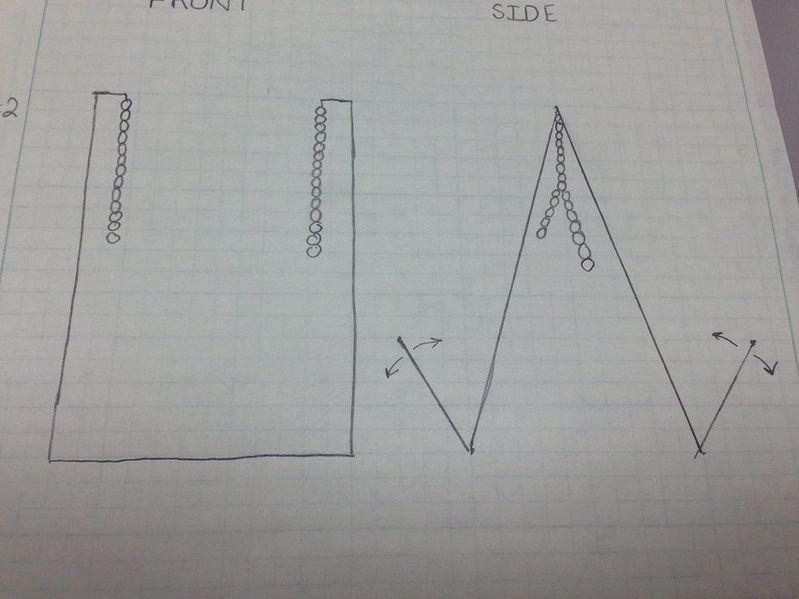 FRONT
SIDE
2